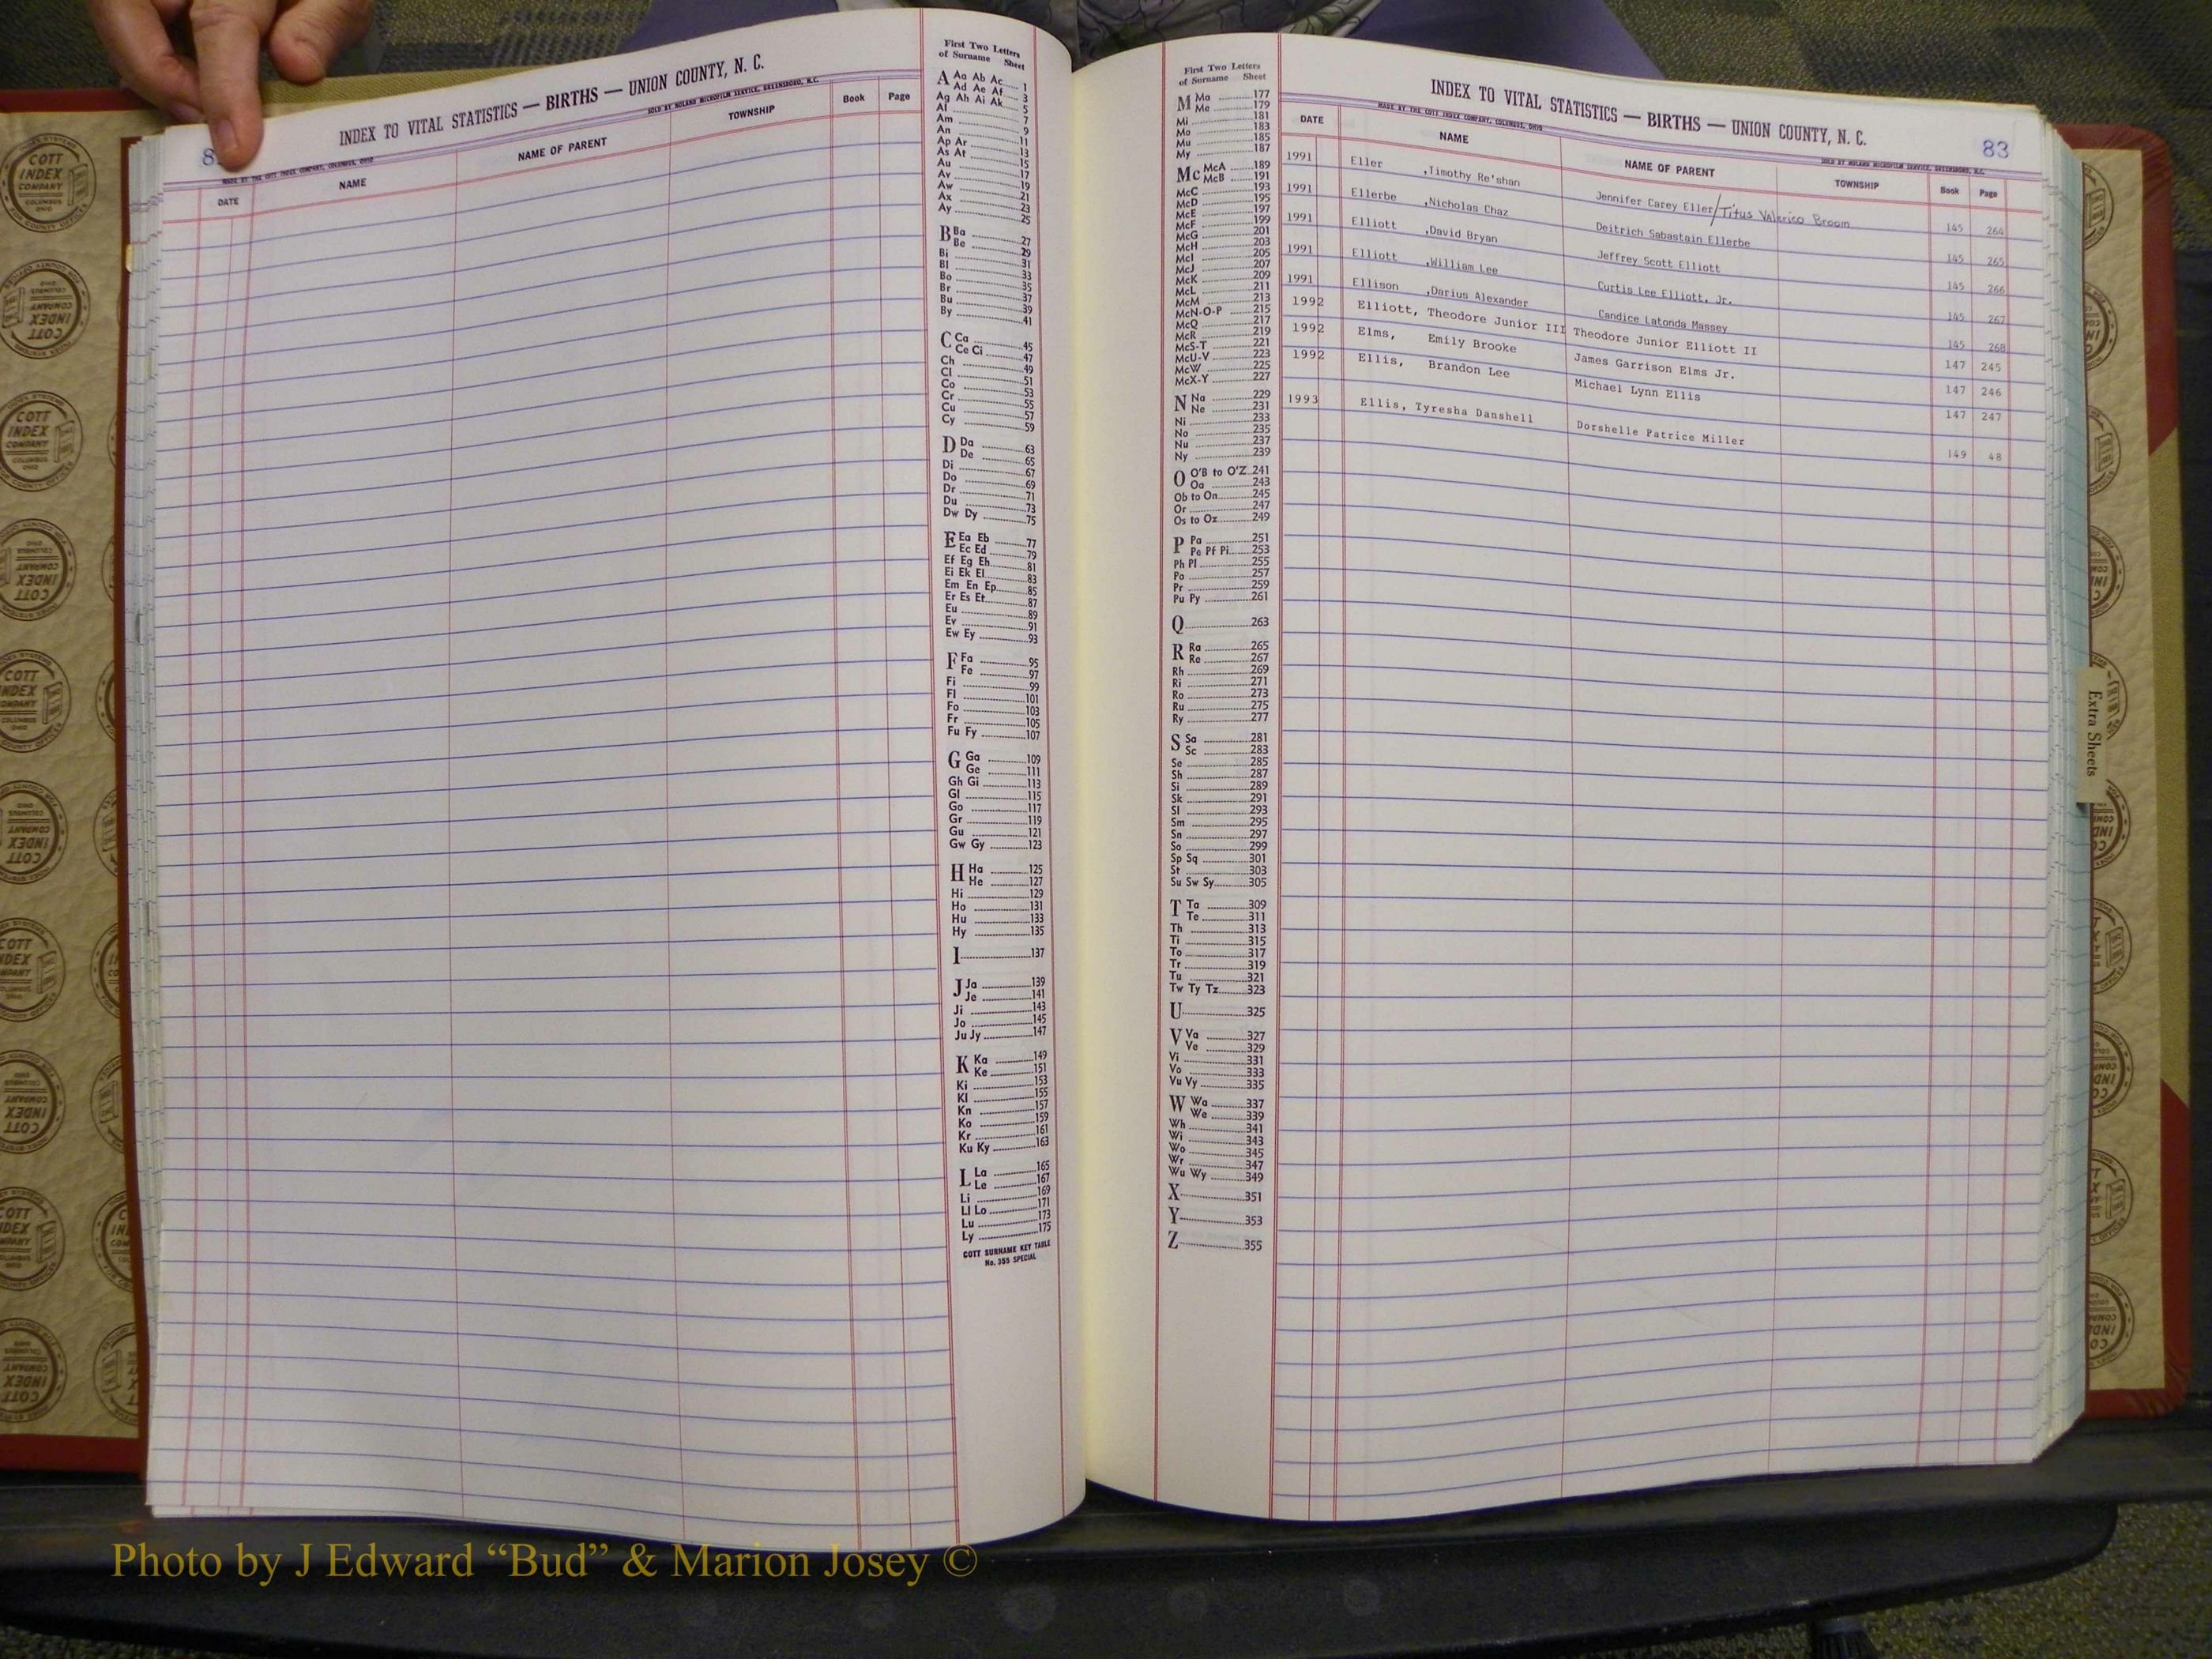 INDEX TO VITAL STATISTICS — BIRTHS — UNION COUNTY, N. C.
MADE BY THE COTT INDEX COMPANY, COLUMBUS, OHIO
SOLD BY NOLAND MICROFILM SERVICE, GREENSBORO, N.C.
DATE NAME NAME OF PARENT TOWNSHIP Book Page
First Two Letters
of Surname Sheet
A Aa Ab Ac 1
Ad Ae Af 3
Ag Ah Ai Ak 5
Al 7
Am 9
An 11
Ap Ar 13
As At 15
Au 17
Av 19
Aw 21
Ax 23
Ay 25
B Ba 27
Be 29
Bi 31
Bl 33
Bo 35
Br 37
Bu 39
By 41
C Ca 45
Ce Ci 47
Ch 49
Cl 51
Co 53
Cr 55
Cu 57
Cy 59
D Da 63
De 65
Di 67
Do 69
Dr 71
Du 73
Dw Dy 75
E Ea Eb 77
Ec Ed 79
Ef Eg Eh 81
Ei Ek El 83
Em En Ep 85
Er Es Et 87
Eu 89
Ev 91
Ew Ey 93
F Fa 95
Fe 97
Fi 99
Fl 101
Fo 103
Fr 105
Fu Fy 107
G Ga 109
Ge 111
Gh Gi 113
Gl 115
Go 117
Gr 119
Gu 121
Gw Gy 123
H Ha 125
He 127
Hi 129
Ho 131
Hu 133
Hy 135
I 137
J Ja 139
Je 141
Ji 143
Jo 145
Ju Jy 147
K Ka 149
Ke 151
Ki 153
Kl 155
Kn 157
Ko 159
Kr 161
Ku Ky 163
L La 165
Le 167
Li 169
Ll Lo 171
Lu 173
Ly 175
COTT SURNAME KEY TABLE
No. 355 SPECIAL
First Two Letters
of Surname Sheet
M Ma 177
Me 179
Mi 181
Mo 183
Mu 185
My 187
Mc McA 189
McB 191
McC 193
McD 195
McE 197
McF 199
McG 201
McH 203
McI 205
McJ 207
McK 209
McL 211
McM 213
McN-O-P 215
McQ 217
McR 219
McS-T 221
McU-V 223
McW 225
McX-Y 227
N Na 229
Ne 231
Ni 233
No 235
Nu 237
Ny 239
O O'B to O'Z 241
Oa 243
Ob to On 245
Or 247
Os to Oz 249
P Pa 251
Pe Pf Pi 253
Ph Pl 255
Po 257
Pr 259
Pu Py 261
Q 263
R Ra 265
Re 267
Rh 269
Ri 271
Ro 273
Ru 275
Ry 277
S Sa 281
Sc 283
Se 285
Sh 287
Si 289
Sk 291
Sl 293
Sm 295
Sn 297
So 299
Sp Sq 301
St 303
Su Sw Sy 305
T Ta 309
Te 311
Th 313
Ti 315
To 317
Tr 319
Tu 321
Tw Ty Tz 323
U 325
V Va 327
Ve 329
Vi 331
Vo 333
Vu Vy 335
W Wa 337
We 339
Wh 341
Wi 343
Wo 345
Wr 347
Wu Wy 349
X 351
Y 353
Z 355
INDEX TO VITAL STATISTICS — BIRTHS — UNION COUNTY, N. C.
83
MADE BY THE COTT INDEX COMPANY, COLUMBUS, OHIO
SOLD BY NOLAND MICROFILM SERVICE, GREENSBORO, N.C.
DATE NAME NAME OF PARENT TOWNSHIP Book Page
1991 Eller ,Timothy Re'shan Jennifer Carey Eller/Titus Valerico Broom 145 264
1991 Ellerbe ,Nicholas Chaz Deitrich Sabastain Ellerbe 145 265
1991 Elliott ,David Bryan Jeffrey Scott Elliott 145 266
1991 Elliott ,William Lee Curtis Lee Elliott, Jr. 145 267
1991 Ellison ,Darius Alexander Candice Latonda Massey 145 268
1992 Elliott, Theodore Junior III Theodore Junior Elliott II 147 245
1992 Elms, Emily Brooke James Garrison Elms Jr. 147 246
1992 Ellis, Brandon Lee Michael Lynn Ellis 147 247
1993 Ellis, Tyresha Danshell Dorshelle Patrice Miller 149 48
Extra Sheets
COTT
INDEX
COMPANY
COLUMBUS
OHIO
Photo by J Edward “Bud” & Marion Josey ©